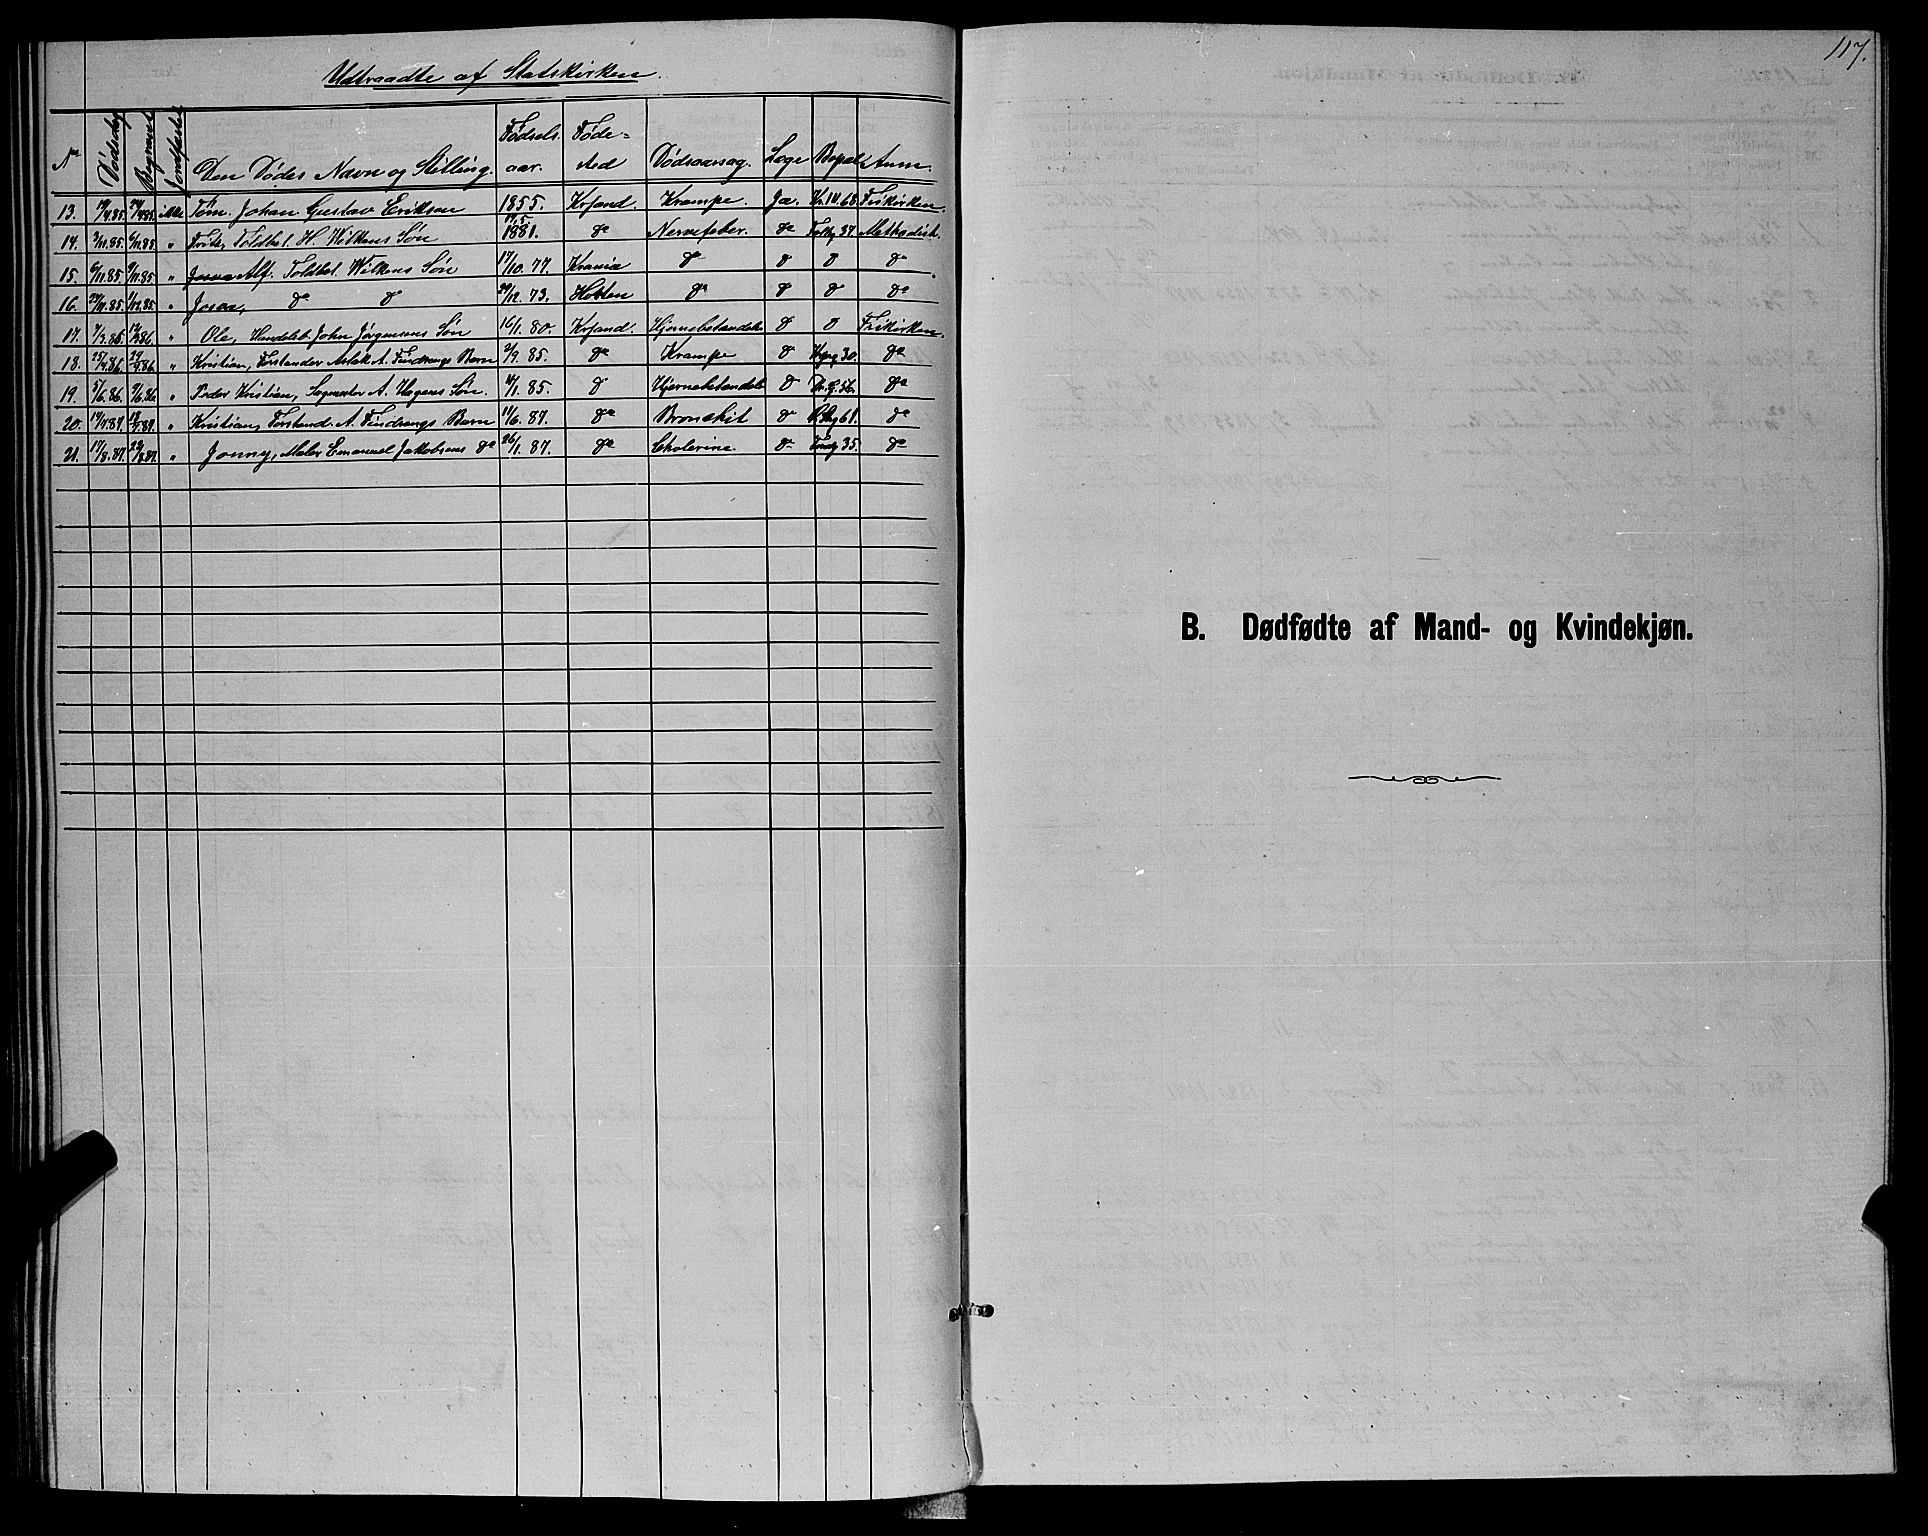 Udtraadte af Statskirken.
No Dødsdag Begravet Jordfæstet Den Dødes Navn og Stilling. Fødsels aar. Føde- sted Dødsaarsag. Læge Bopæl Anm.
13. 19/4.85. 24/4.85. ikke Tøm. Johan Gustav Eriksen 1855. Krsand. Krampe. Ja. Frikirken.
14. 3/11.85. 6/11.85 " Frits, Toldbet. H. Wilkens Søn 1881. do Nervefeber. do Methodist.
15. 6/11.85. 9/11.85 " Alf. Toldbet. Wilkens Søn 17/10.77. Krania do do do do
16. 85. /12.85. " do do 29/12.73. Horten do do do do
17. 7/3.86. 12/3.86. " Ole, Handelsb. John Jørgensens Søn 16/1.80. Krsand. Hjernebetændelse do do Frikirken.
18. 25/4.86. 29/4.86 " Kristian, Forstander Aslak A. Findrengs Barn 2/9.85. do Krampe do 30. do
19. 5/6.86. 9/6.86 " Peder Kristian, A. Hagens Søn. 4/1.85. do Hjernebetændelse do do
20. 14/7.87. 18/7.87. " Kristian, Forstand. A. Findrengs Barn 11/6.87. do Bronckit do 61. do
21. 17/8.87. 22/8.87. " Jonny, Maler Emanuel Jakobsens do 26/1.87. do Cholerine do 35. do
117.
B. Dødfødte af Mand- og Kvindekjøn.